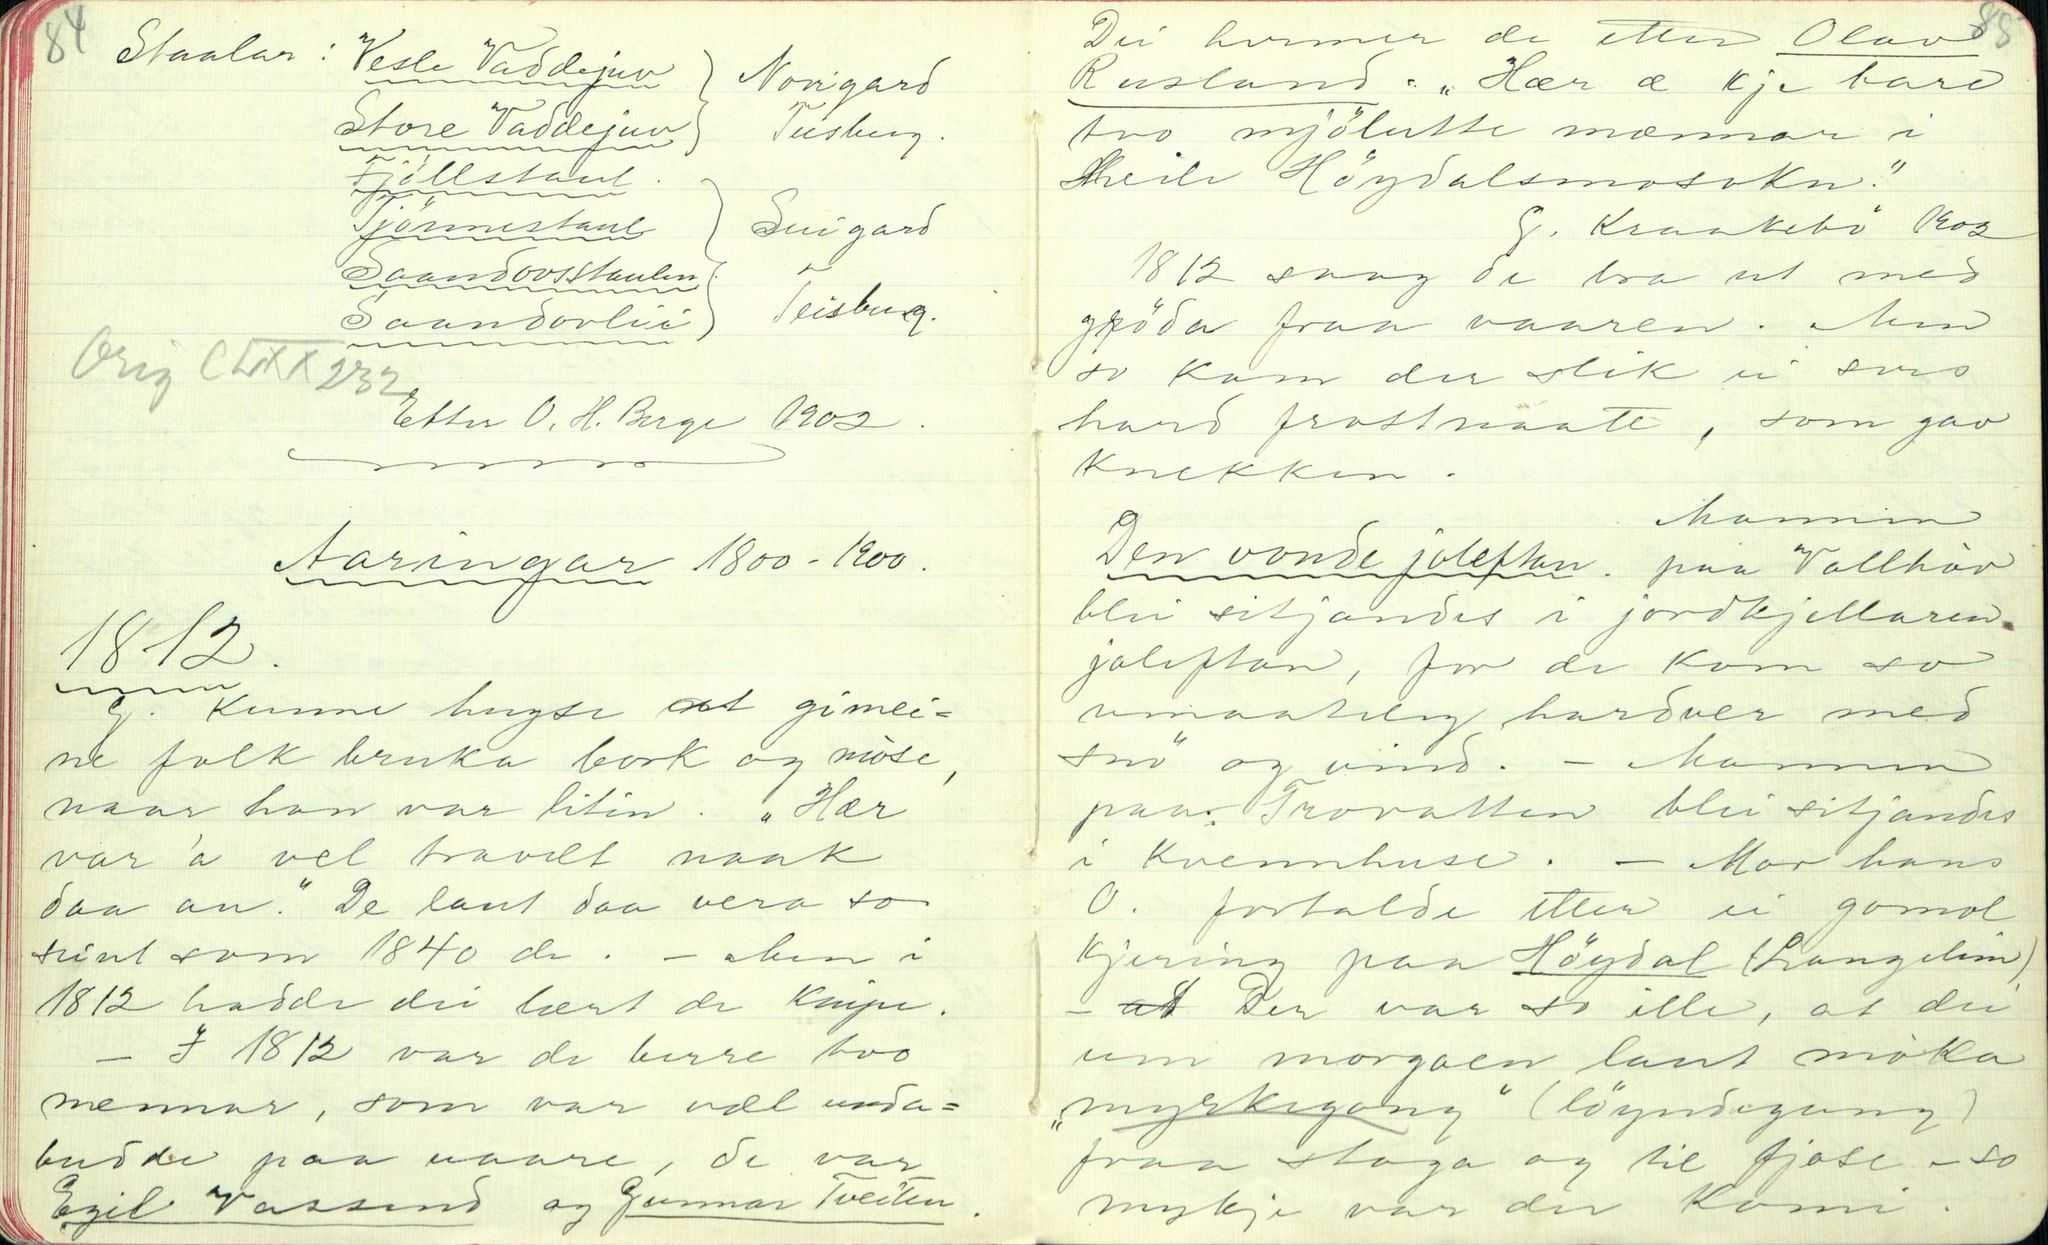 84
Staalar: Vesle Vaddejuv } Norigard
Store Vaddejuv } Teisberg.
Fjöllstaul.
Tjönnestaul } Suigard
Saandovsstaulen
Saandovlii } Teisberg.
Orig CLXX 232
Etter O. H. Berge 1902.
Aaringar 1800-1900.
1812.
G. kunne hugse at gimei=
ne folk bruka bork og möse,
naar han var litin. "Hær
var a vel travelt naak
daa au." De laut daa vera so
seint som 1840 de. - Men i
1812 hadde dei lært de knipe.
- I 1812 var de berre two
mennar, som var vel unda=
budde paa uaare, de var
Egil Vassend og Gunnar Tveiten.
85
Dei hermer de etter Olav
Rusland: "Hær æ kje bare
two mjölutte mænnar i
heile Höydalsmosokn."
G. Kraakebö 1902
1812 saag de bra ut med
gröda fraa vaaren. Men
so kom der slik ei svær
hard frostnaatt, som gav
knekken.
Den vonde joleftan. Mannen
paa Vallhöv
blei sitjandes i jordkjellaren
joleftan, for de kom so
umaateleg hardver med
snö og vind. - Mannen
paa Trovatten blei sitjandes
i kvennhuse. - Mor hans
O. fortalde etter ei gomol
kjering paa Höydal (Langelim)
- at Der var so ille, at dei
um morgaen laut möka
"myrkegong" (löyndegang)
fraa stoga og til fjose - so
mykje var der komi.